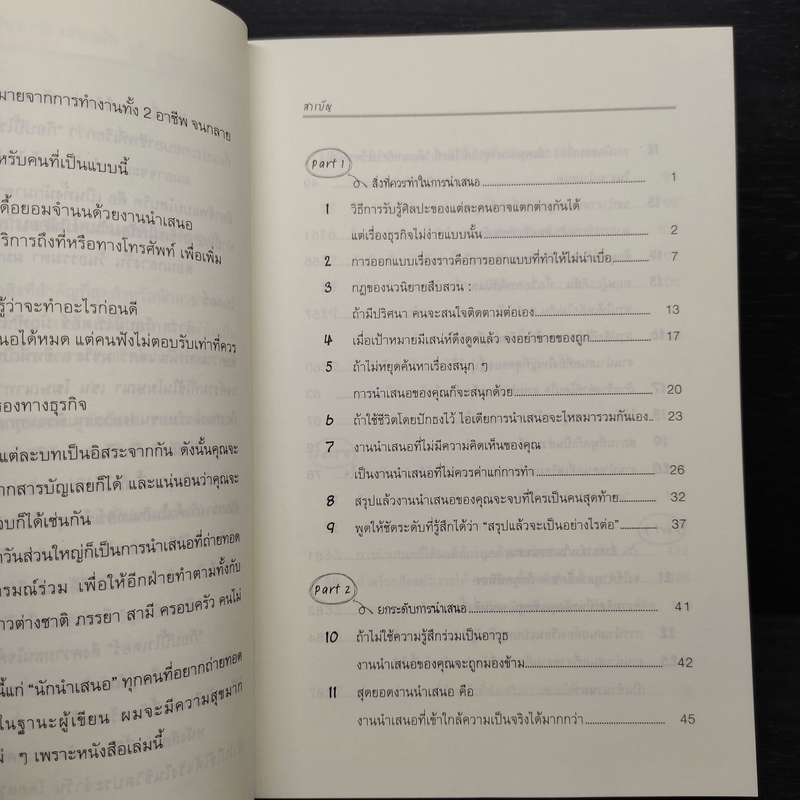 มายจากการทำงานทั้ง 2 อาชีพ จนกลาย
หรับคนที่เป็นแบบนี้
ดื้อยอมจำนนด้วยงานนำเสนอ
ริการถึงที่หรือทางโทรศัพท์ เพื่อเพิ่ม
รู้ว่าจะทำอะไรก่อนดี
นอได้หมด แต่คนฟังไม่ตอบรับเท่าที่ควร
รองทางธุรกิจ
แต่ละบทเป็นอิสระจากกัน ดังนั้นคุณจะ
ากสารบัญเลยก็ได้ และแน่นอนว่าคุณจะ
จบก็ได้เช่นกัน
าวันส่วนใหญ่ก็เป็นการนำเสนอที่ถ่ายทอด
ารมณ์ร่วม เพื่อให้อีกฝ่ายทำตามทั้งกับ
าวต่างชาติ ภรรยา สามี ครอบครัว คนไม่
นี้แก่ “นักนำเสนอ” ทุกคนที่อยากถ่ายทอด
ในฐานะผู้เขียน ผมจะมีความสุขมาก
ๆ เพราะหนังสือเล่มนี้
สารบัญ
Part 1
สิ่งที่ควรทำในการนำเสนอ 1
1 วิธีการรับรู้ศิลปะของแต่ละคนอาจแตกต่างกันได้
แต่เรื่องธุรกิจไม่ง่ายแบบนั้น 2
2 การออกแบบเรื่องราวคือการออกแบบที่ทำให้ไม่น่าเบื่อ 7
3 กฎของนวนิยายสืบสวน :
ถ้ามีปริศนา คนจะสนใจติดตามต่อเอง 13
4 เมื่อเป้าหมายมีเสน่ห์ดึงดูดแล้ว จงอย่าขายของถูก 17
5 ถ้าไม่หยุดค้นหาเรื่องสนุก ๆ
การนำเสนอของคุณก็จะสนุกด้วย 20
6 ถ้าใช้ชีวิตโดยปักธงไว้ ไอเดียการนำเสนอจะไหลมารวมกันเอง 23
7 งานนำเสนอที่ไม่มีความคิดเห็นของคุณ
เป็นงานนำเสนอที่ไม่ควรค่าแก่การทำ 26
8 สรุปแล้วงานนำเสนอของคุณจะจบที่ใครเป็นคนสุดท้าย 32
9 พูดให้ชัดระดับที่รู้สึกได้ว่า “สรุปแล้วจะเป็นอย่างไรต่อ” 37
Part 2
ยกระดับการนำเสนอ 41
10 ถ้าไม่ใช้ความรู้สึกร่วมเป็นอาวุธ
งานนำเสนอของคุณจะถูกมองข้าม 42
11 สุดยอดงานนำเสนอ คือ
งานนำเสนอที่เข้าใกล้ความเป็นจริงได้มากกว่า 45